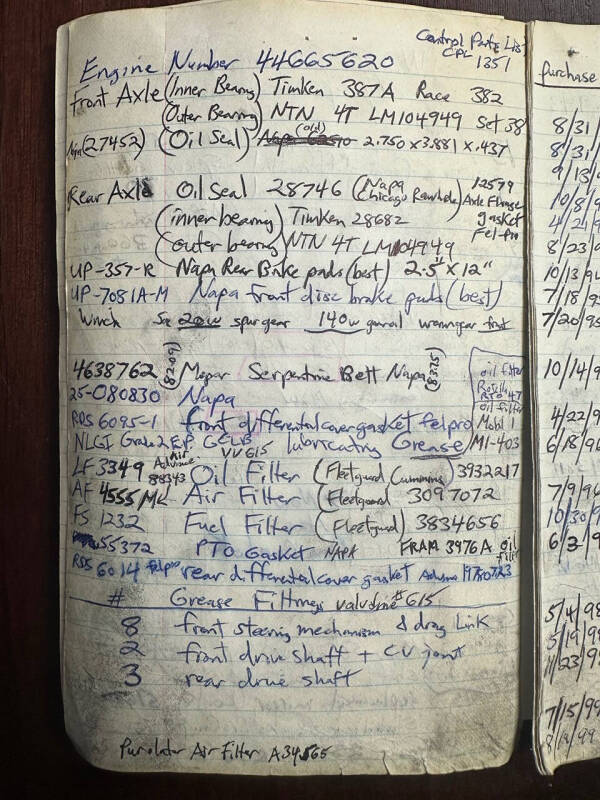 Control Parts List
CPL 1351
Engine Number 44665620
Front Axle (Inner Bearing) Timken 387A Race 382
(Outer Bearing) NTN 4T LM104949 Set 38
(27452) (Oil Seal) (old) 2.750 x 3.881 x .437
Rear Axle Oil Seal 28746 (Napa Chicago Rawhide) 12579 Axle Flange gasket Fel-Pro
(inner bearing) Timken 28682
(outer bearing) NTN 4T LM104949
UP-357-R Napa Rear Brake pads (best) 2.5" x 12"
UP-7081A-M Napa front disc brake pads (best)
Winch 20w spur gear 140w
4638762 (82.09) Mopar Serpentine Belt Napa (8325)
25-080830 Napa
RDS 6095-1 front differential cover gasket felpro
NLGI Grade 2 E.P. GC-LB lubricating Grease
VV615
oil filter
oil filter
Mobil 1
M1-403
LF 3349 Air Advance 88343 Oil Filter (Fleetguard Cummins) 3932217
AF 4555 MK Air Filter (Fleetguard) 3097072
FS 1232 Fuel Filter (Fleetguard) 3834656
55372 PTO Gasket NAPA FRAM 3976A Oil Filter
RDS 6014 felpro rear differential cover gasket
# Grease Fittings valvoline #615
8 front steering mechanism & drag link
2 front drive shaft + CV joint
3 rear drive shaft
Purolator Air Filter A34565
purchase
8/31
8/31
9/13
10/8/9
4/2/9
8/23
10/13/9
7/18/95
7/20/95
10/14/9
4/22/9
6/18/96
7/9/96
10/30/9
6/3/9
5/4/98
5/19/98
11/23/98
7/15/99
8/19/99